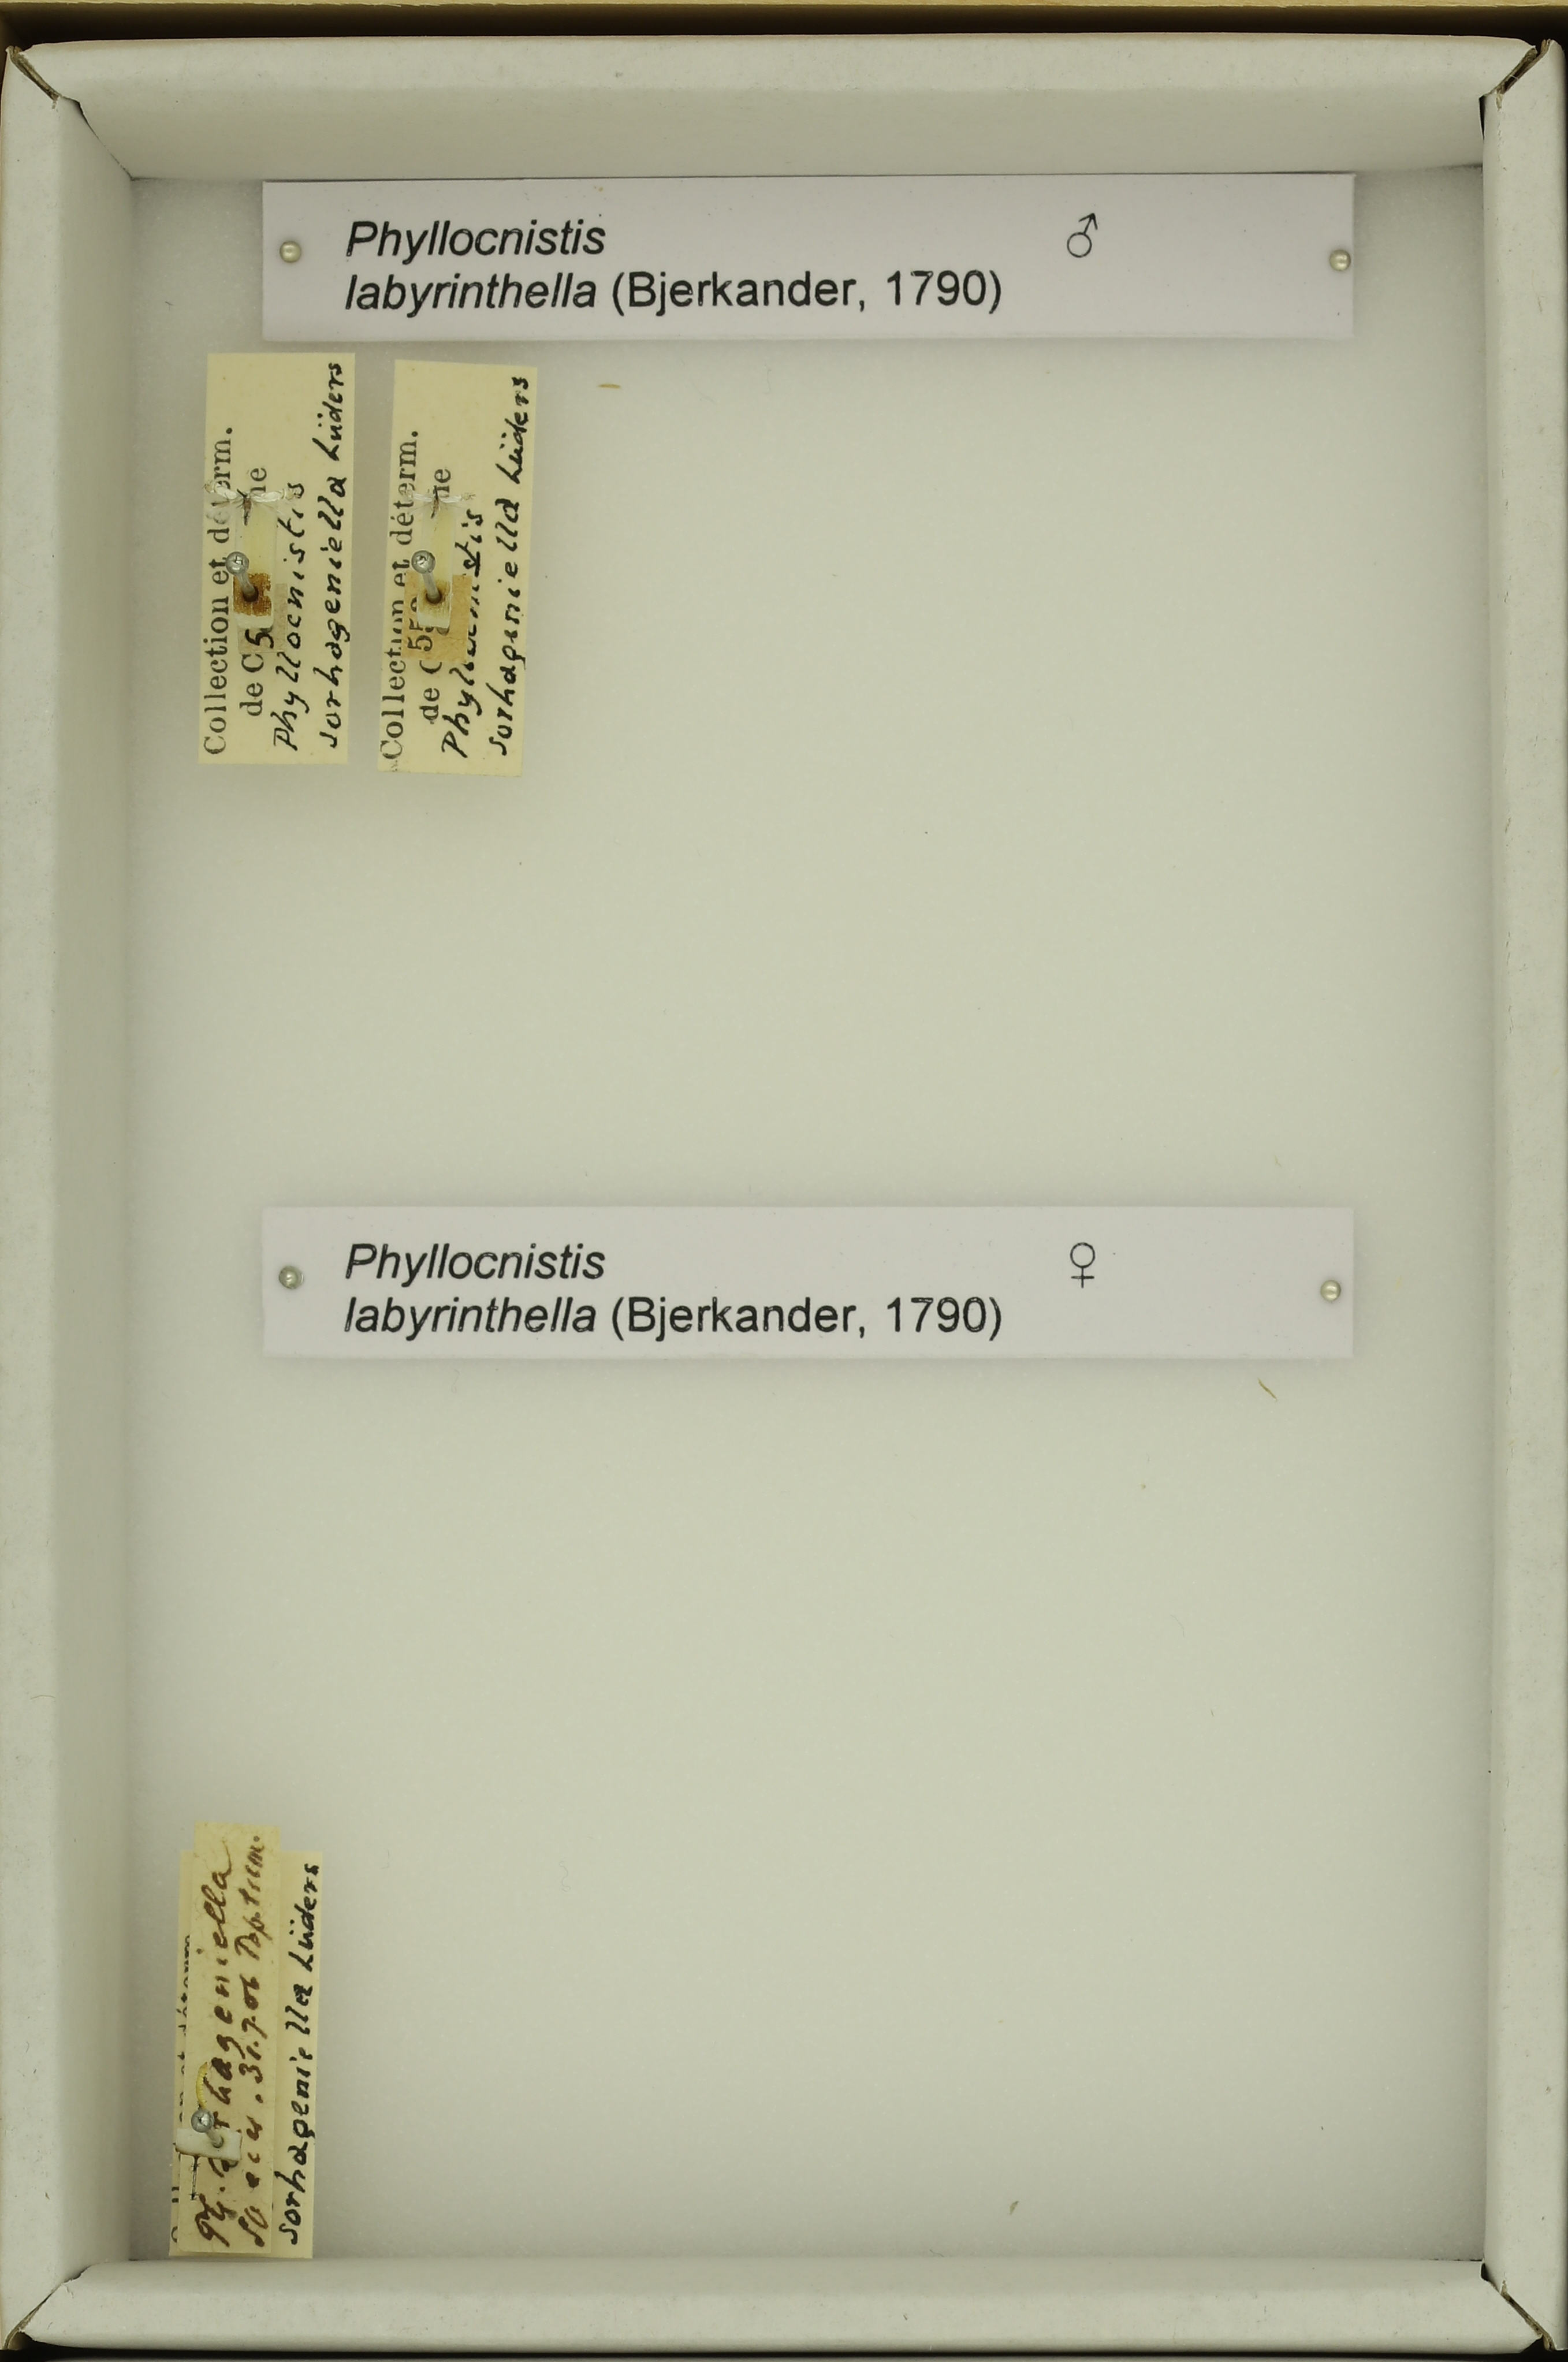 Phyllocnistis ♂
labyrinthella (Bjerkander, 1790)
Collection et déterm.
de C
5
Phyllocnistis
sorhageniella Lüders
Collection et déterm.
de C
55
sorhageniella Lüders
Phyllocnistis ♀
labyrinthella (Bjerkander, 1790)
31.7.06
sorhageniella Lüders